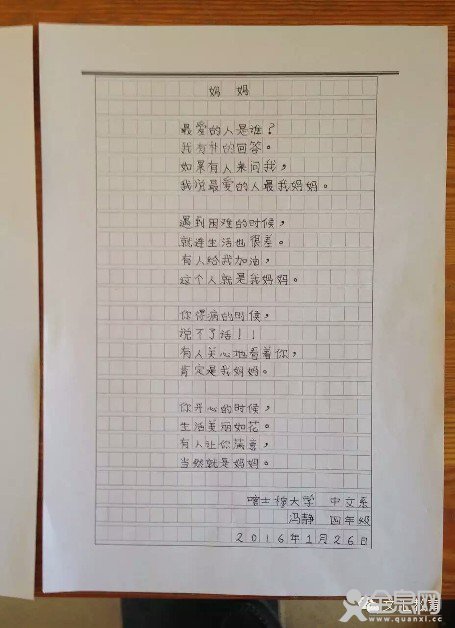 妈 妈
最爱的人是谁？
我有 的回答。
如果有人来问我，
我说最爱的人最我妈妈。
遇到困难的时候，
就连生活也很差。
有人给我加油，
这个人就是我妈妈。
你得病的时候，
说不了话！！
有人关心地看着你，
肯定是我妈妈。
你开心的时候，
生活美丽如花。
有人让你满意，
当然就是妈妈。
喀土穆大学 中文系
冯静 四年级
2016年1月26日
全息网
www.quanxi.cc